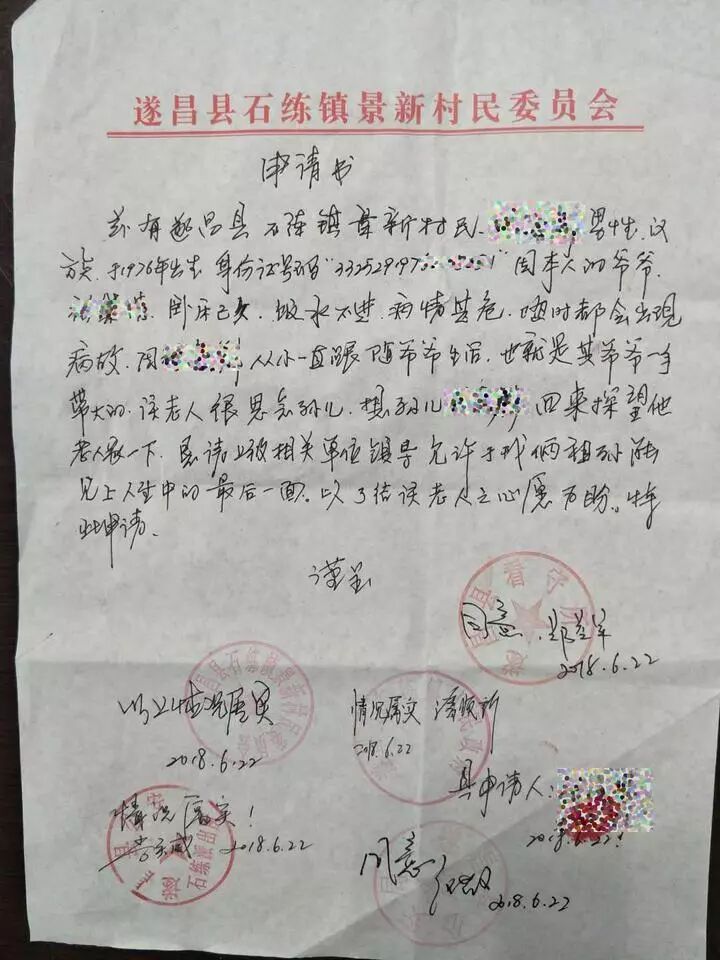 遂昌县石练镇景新村民委员会
申请书
兹有遂昌县石练镇景新村民 男性,汉
族,于1976年出生 身份证号码"332529197 因本人的爷爷
卧床已久,饭水不进,病情甚危,随时都会出现
病故,因 从小一直跟随爷爷生活,也就是其爷爷一手
带大的,该老人很思念孙儿,想孙儿 回来探望他
老人家一下,恳请上级相关单位领导允许于我俩祖孙能
见上人生中的最后一面。以了结该老人之心愿为盼。特
此申请。
谨呈
同意
2018.6.22
以上情况属实
2018.6.22
情况属实
2018.6.22
具申请人:
2018.6.22
情况属实!
2018.6.22
石练派出所
同意
2018.6.22